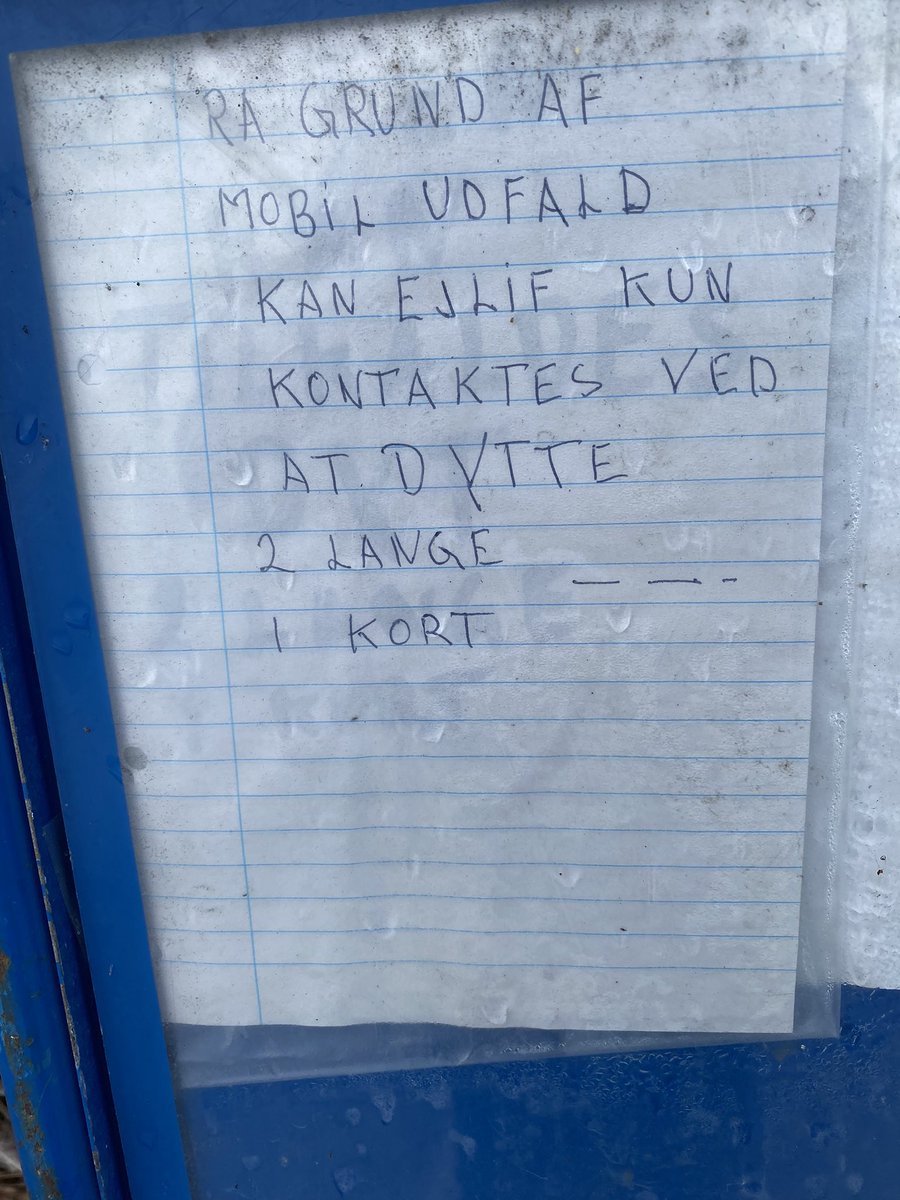 RA GRUND AF
MOBIL UDFALD
KAN EJLIF KUN
KONTAKTES VED
AT DYTTE
2 LANGE — — -
1 KORT